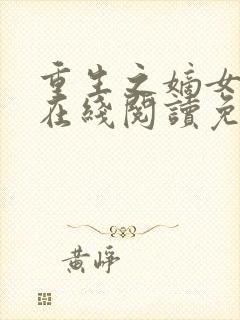 重生之嫡女
在綫閱讀免
黄崢